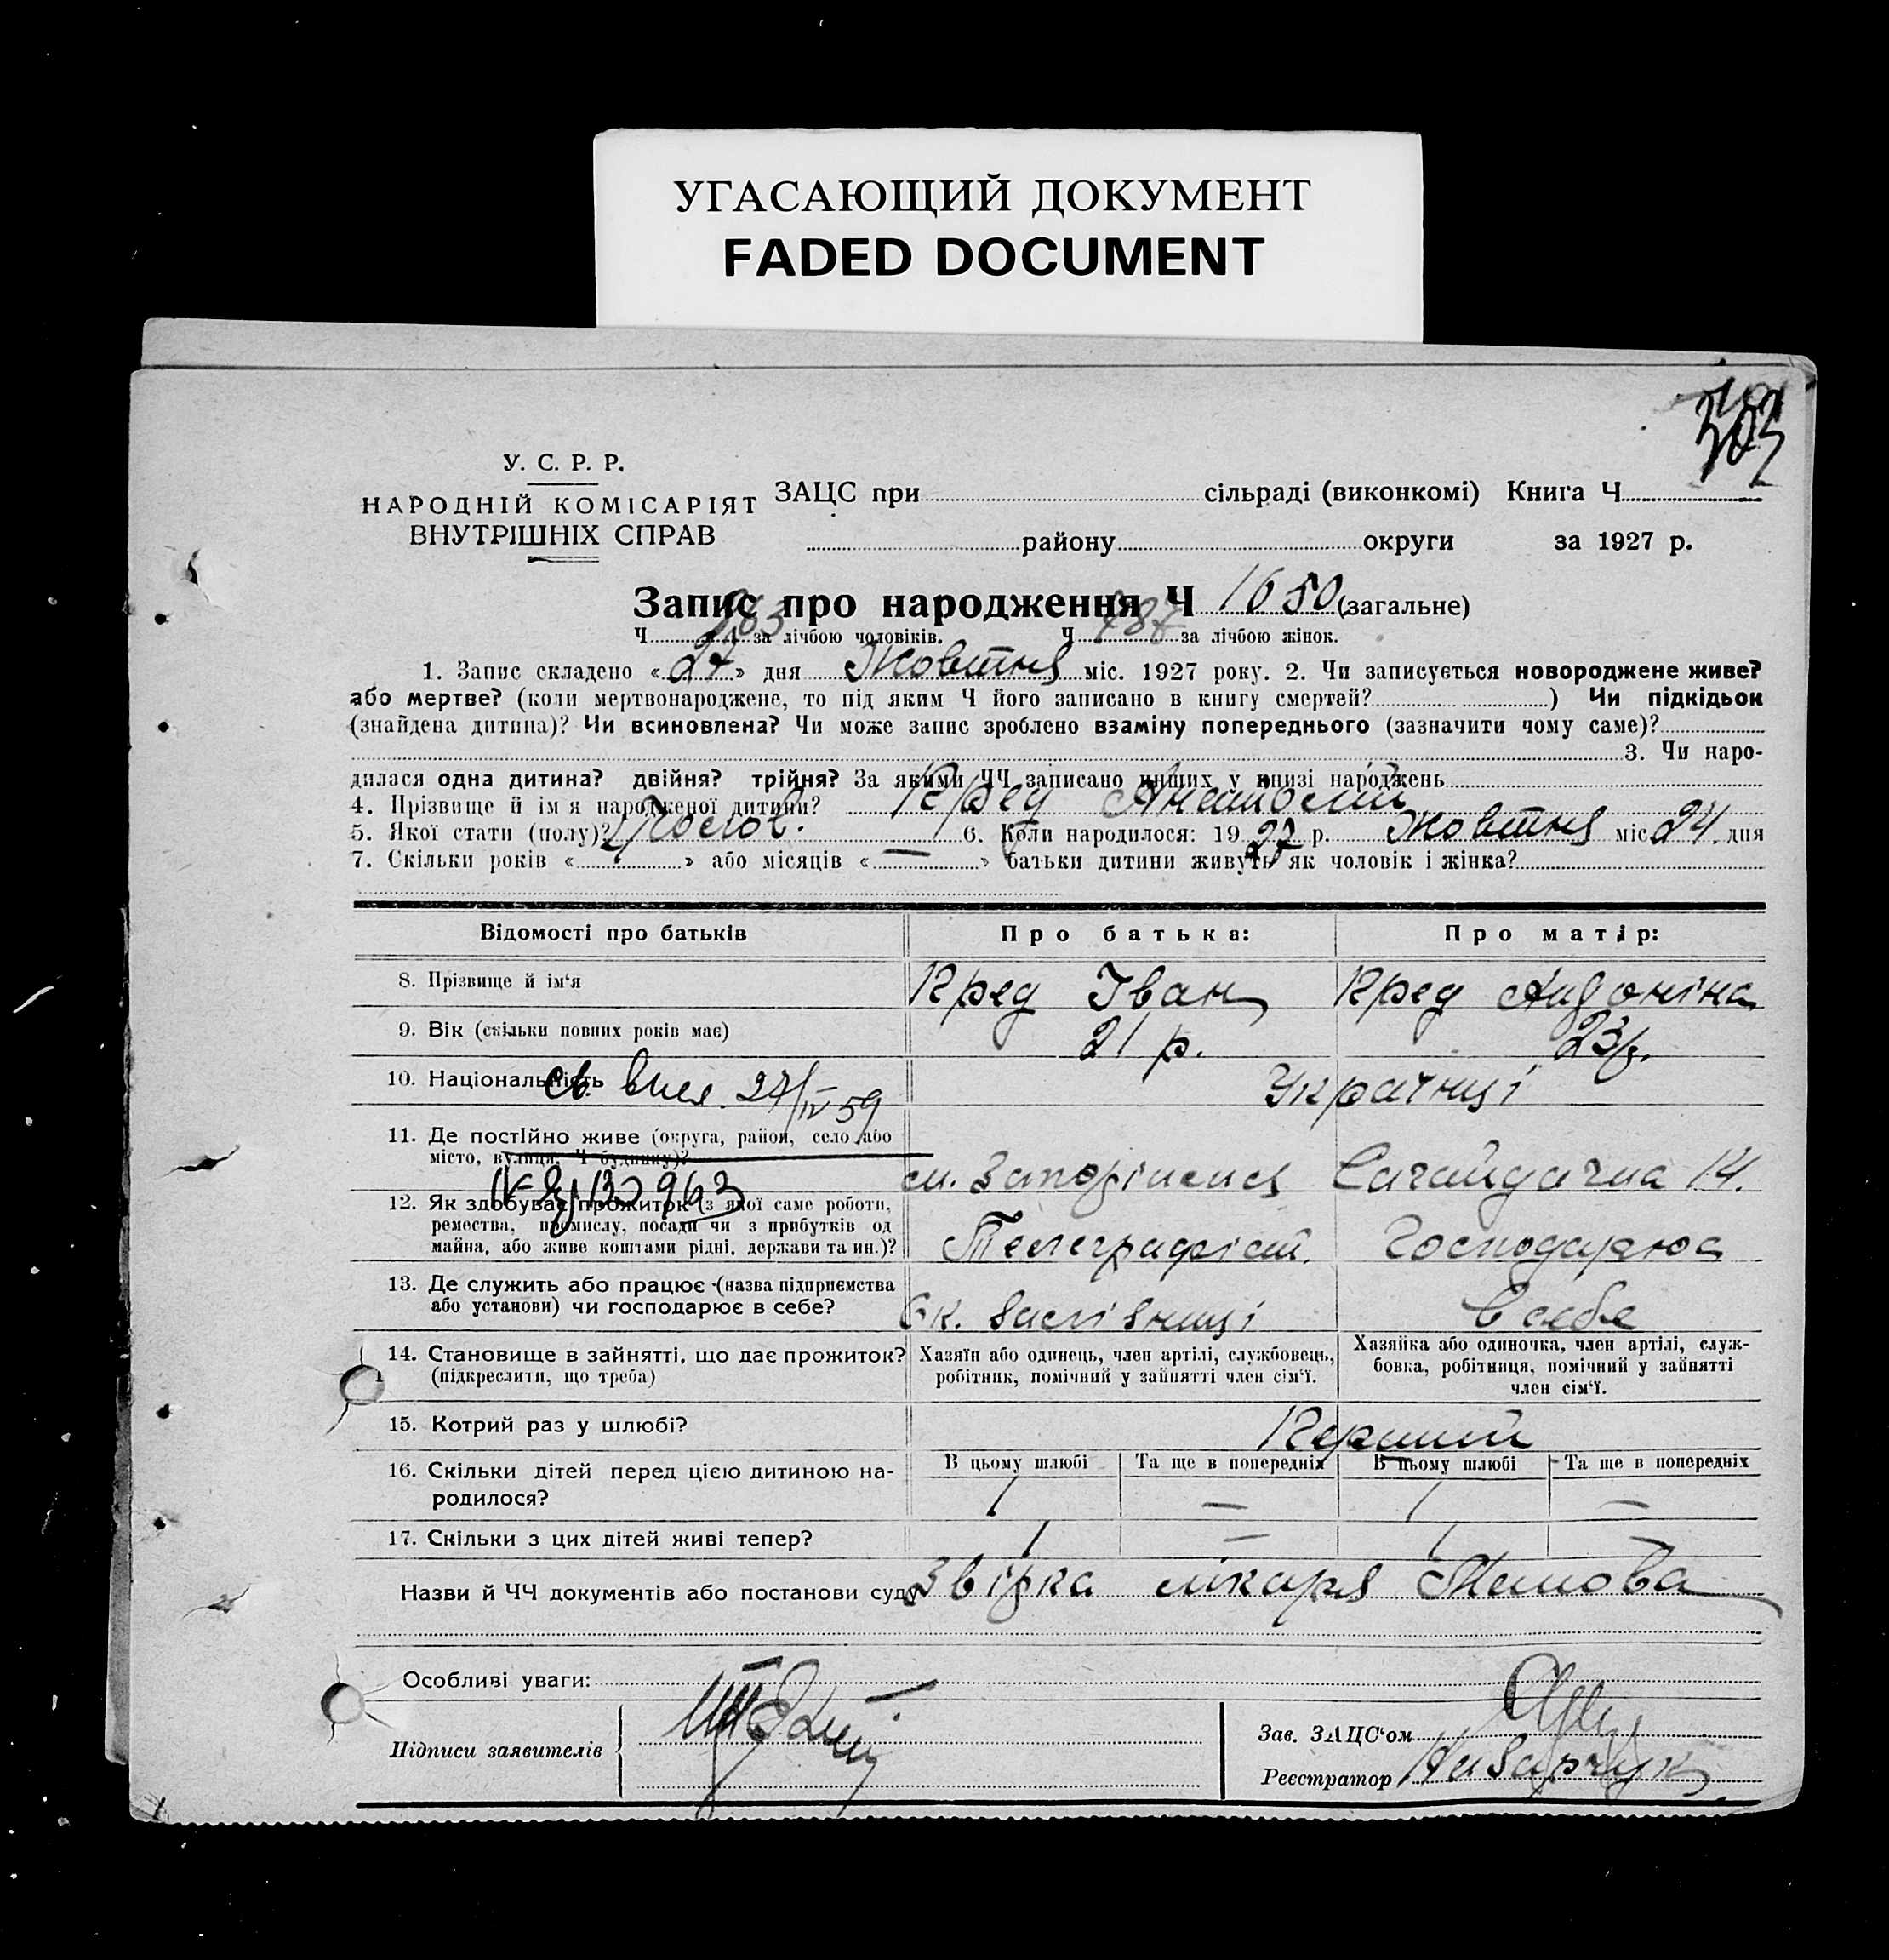 УГАСАЮЩИЙ ДОКУМЕНТ
FADED DOCUMENT
У. С. Р. Р.
НАРОДНІЙ КОМІСАРІЯТ
ВНУТРІШНІХ СПРАВ
ЗАЦС при сільраді (виконкомі) Книга Ч
району округи за 1927 р.
Запис про народження Ч 1650 (загальне)
Ч за лічбою чоловіків. Ч 787 за лічбою жінок.
1. Запис складено « 27 » дня Жовтня міс. 1927 року. 2. Чи записується новороджене живе?
або мертве? (коли мертвонароджене, то під яким Ч його записано в книгу смертей? ) Чи підкідьок
(знайдена дитина)? Чи всиновлена? Чи може запис зроблено взаміну попереднього (зазначити чому саме)?
3. Чи наро-
дилася одна дитина? двійня? трійня? За якими ЧЧ записано инших у книзі народжень
4. Прізвище й ім я народженої дитини? Кред Анатолій
5. Якої стати (полу)? Чолов. 6. Коли народилося: 19 27 р. Жовтня міс 24 дня
7. Скільки років « » або місяців « — » батьки дитини живуть як чоловік і жінка?
Відомості про батьків Про батька: Про матір:
8. Прізвище й ім‘я Кред Іван Кред
9. Вік (скільки повних років має) 21 р. 23 р.
10. Національність Українці
св. выд. 24/IV 59
11. Де постійно живе (округа, район, село або
місто, вулиця, Ч будинку)? м. Запоріжжя Сагайдачна 14.
12. Як здобуває прожиток (з якої саме роботи,
ремества, промислу, посади чи з прибутків од
майна, або живе коштами рідні, держави та ин.)? Телеграфіст. Господарює
13. Де служить або працює (назва підприємства
або установи) чи господарює в себе? Ек. залізниці В себе
14. Становище в зайнятті, що дає прожиток?
(підкреслити, що треба)
Хазяїн або одинець, член артілі, службовець,
робітник, помічний у зайнятті член сім‘ї.
Хазяйка або одиночка, член артілі, служ-
бовка, робітниця, помічний у зайнятті
член сім‘ї.
15. Котрий раз у шлюбі? Перший
16. Скільки дітей перед цією дитиною на-
родилося?
В цьому шлюбі Та ще в попередніх В цьому шлюбі Та ще в попередніх
1 — 1 —
17. Скільки з цих дітей живі тепер? 1 — 1 —
Назви й ЧЧ документів або постанови суду Звідка лікаря
Особливі уваги:
Підписи заявителів
Зав. ЗАЦС‘ом
Реєстратор